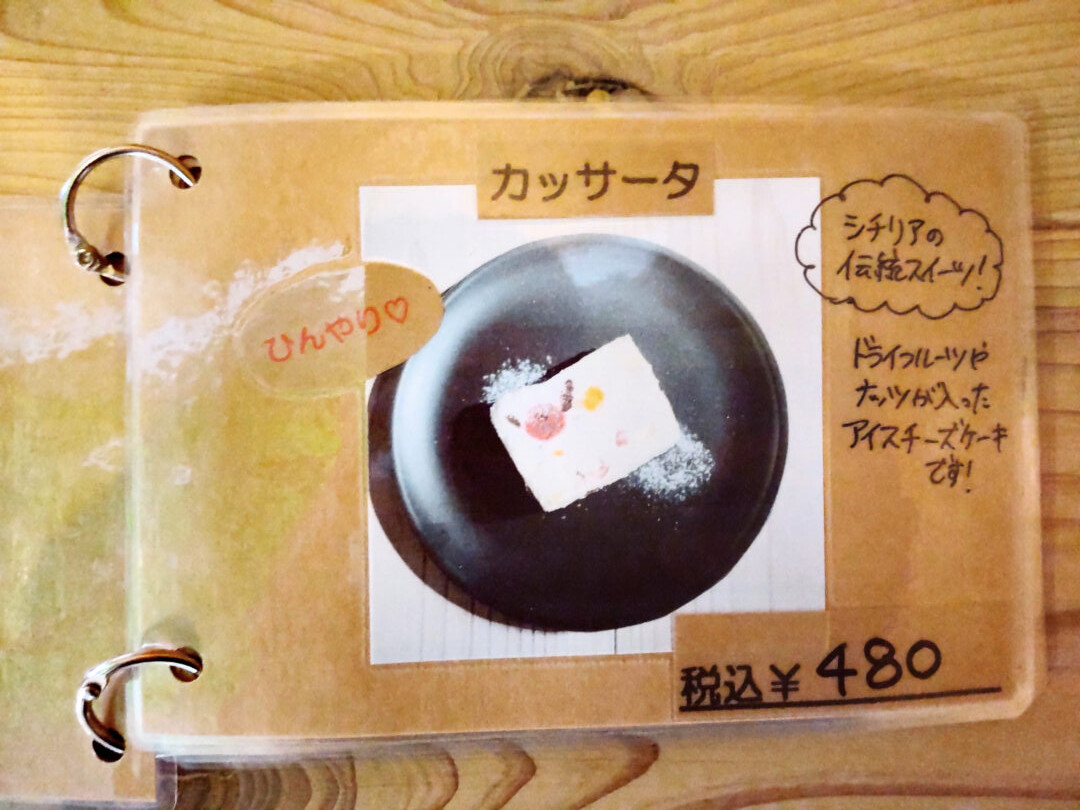 カッサータ
シチリアの
伝統スイーツ!
ひんやり♡
ドライフルーツや
ナッツが入った
アイスチーズケーキ
です!
税込¥480